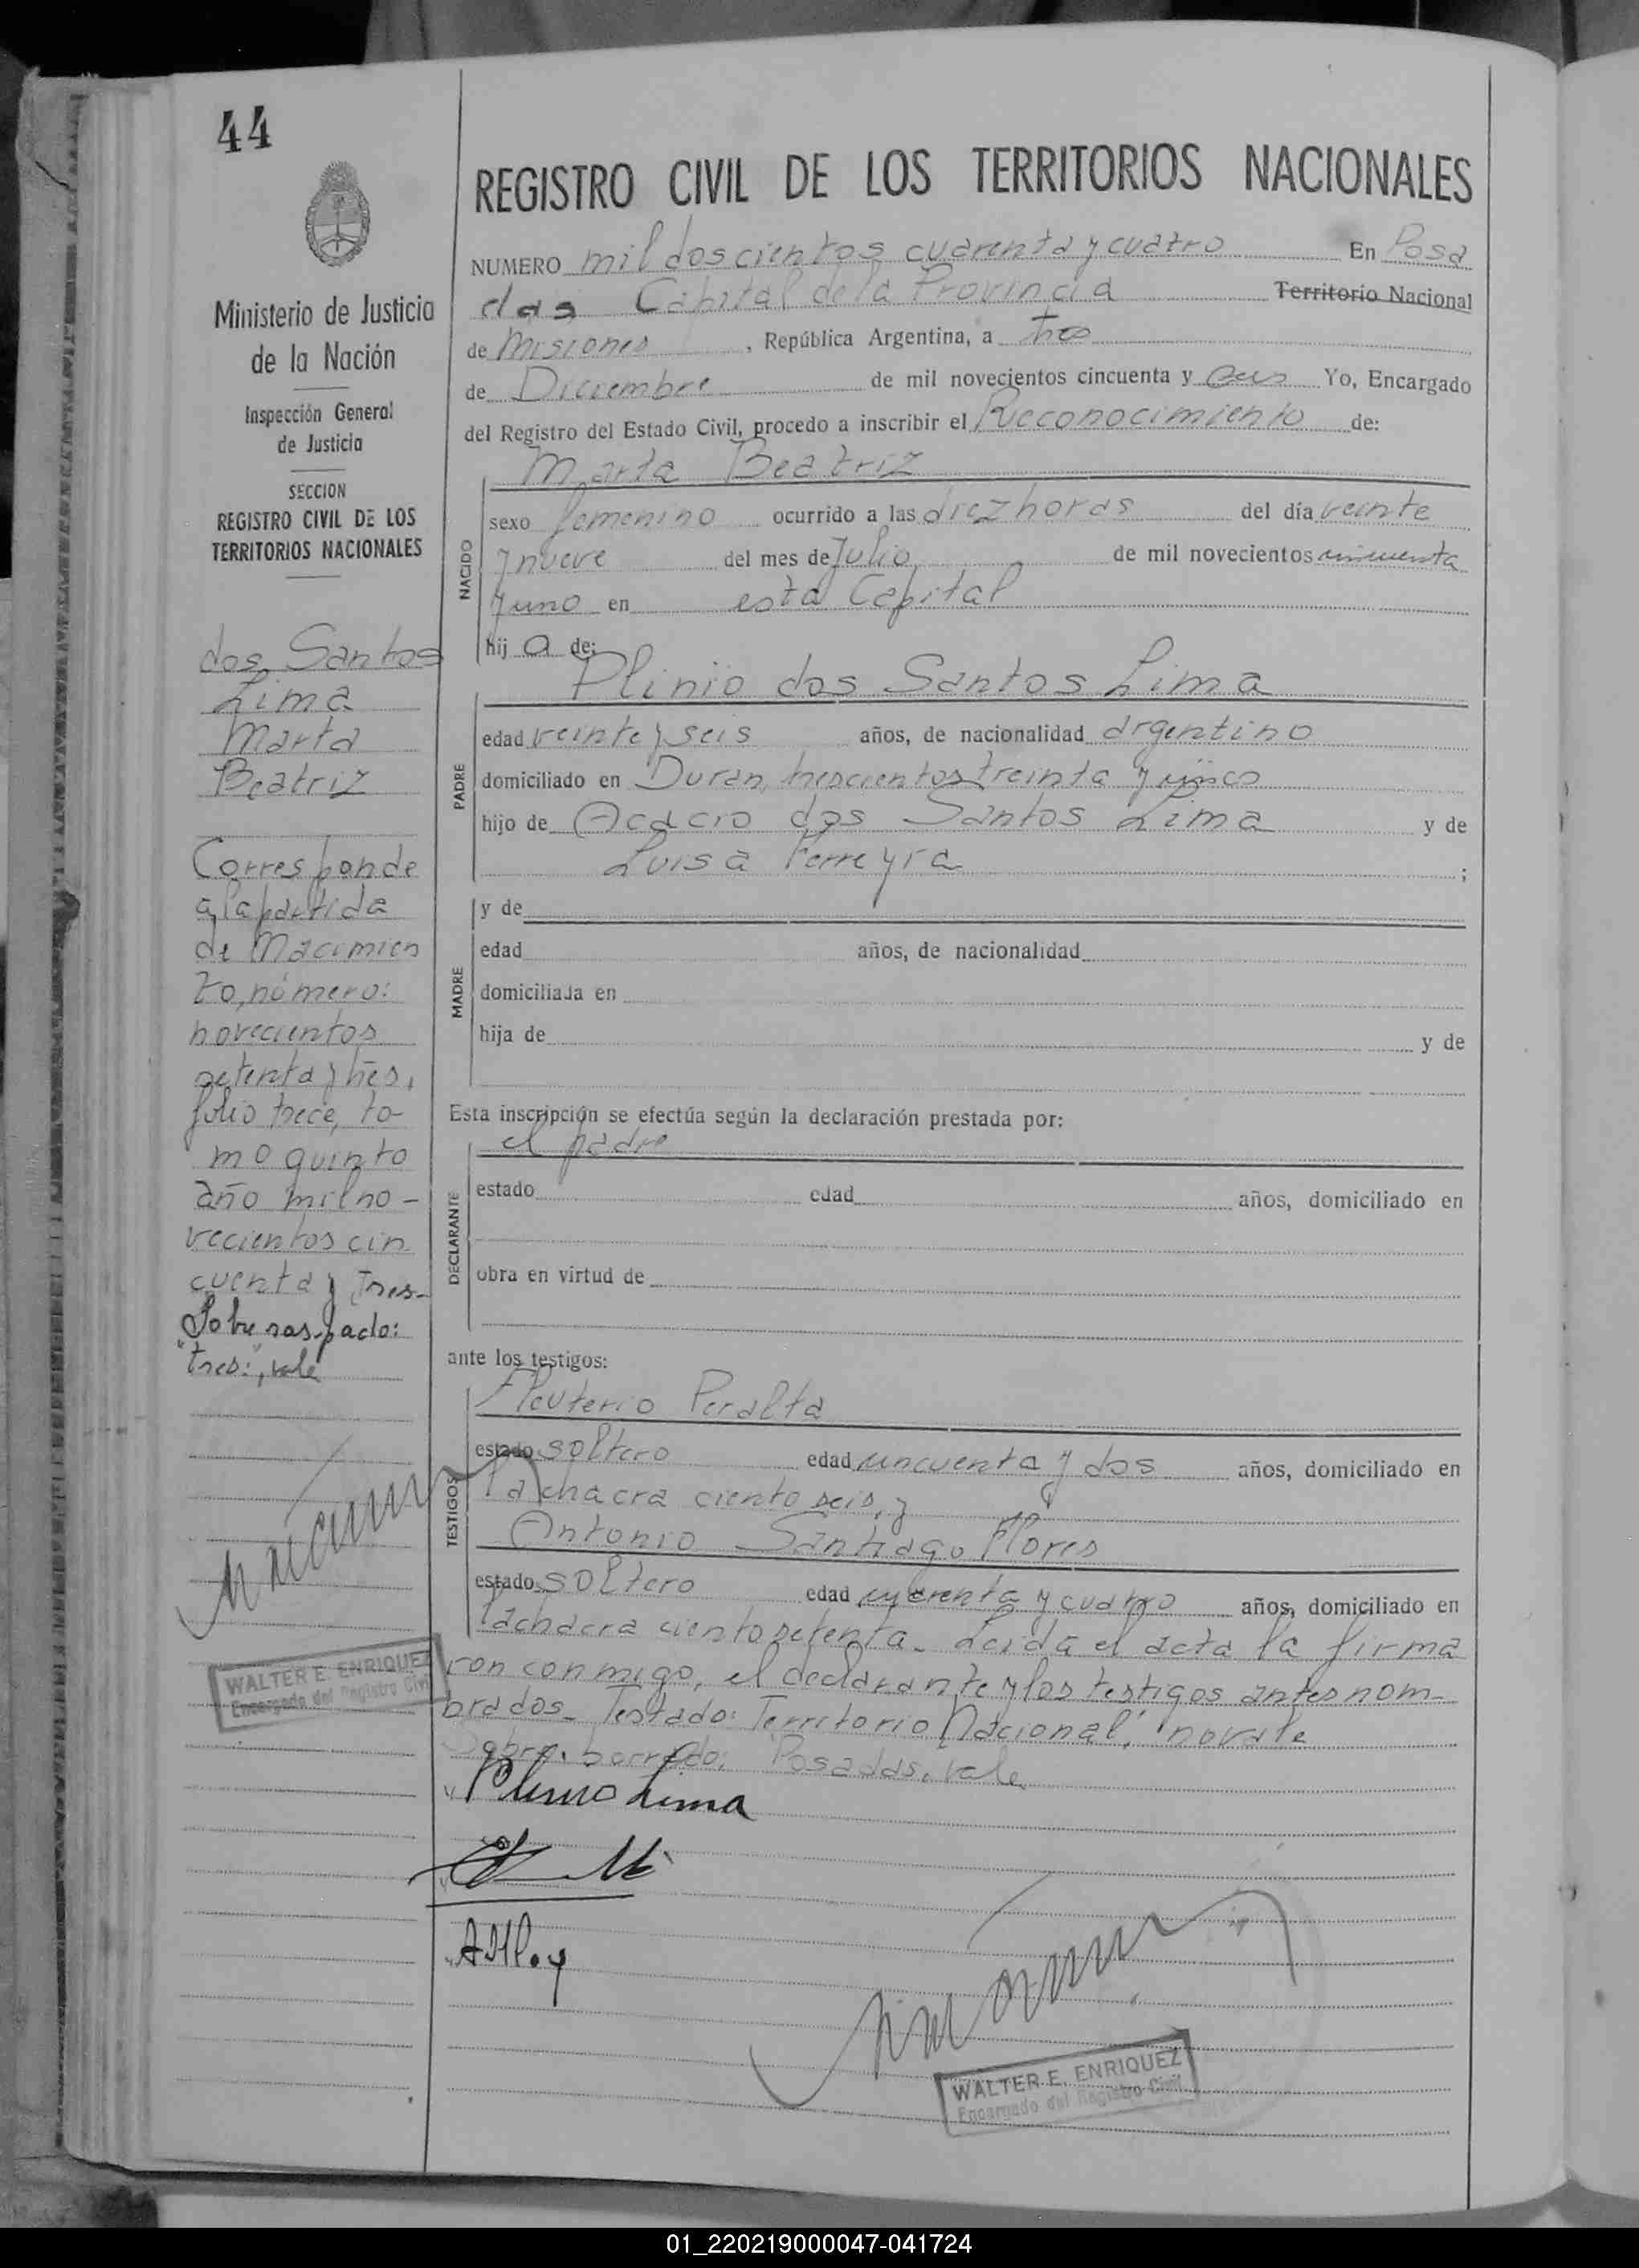 44
Ministerio de Justicia
de la Nación
Inspección General
de Justicia
SECCION
REGISTRO CIVIL DE LOS
TERRITORIOS NACIONALES
dos Santos
Lima
Marta
Beatriz
Corresponde
a la partida
de Nacimien
to, número:
novecientos
setenta y tres,
folio trece, to-
mo quinto
año mil no-
vecientos cin
cuenta y Tres-
Sobre raspado:
"tres:", vale
WALTER E. ENRIQUEZ
Encargado del Registro Civil
REGISTRO CIVIL DE LOS TERRITORIOS NACIONALES
NUMERO mil doscientos cuarenta y cuatro En Posa
das Capital de la Provincia Territorio Nacional
de Misiones, República Argentina, a tres
de Diciembre de mil novecientos cincuenta y seis Yo, Encargado
del Registro del Estado Civil, procedo a inscribir el Reconocimiento de:
Marta Beatriz
NACIDO
sexo femenino ocurrido a las diez horas del día veinte
y nueve del mes de Julio de mil novecientos cincuenta
y uno en esta Capital
hij a de:
Plinio dos Santos Lima
PADRE
edad veinte y seis años, de nacionalidad argentino
domiciliado en Duran, trescientos treinta y cinco
hijo de Acacio dos Santos Lima y de
Luisa Ferreyra ;
MADRE
y de
edad años, de nacionalidad
domiciliada en
hija de y de
Esta inscripción se efectúa según la declaración prestada por:
el padre
DECLARANTE
estado edad años, domiciliado en
obra en virtud de
ante los testigos:
TESTIGOS
Eleuterio Peralta
estado soltero edad cincuenta y dos años, domiciliado en
la chacra ciento seis, y
Antonio Santiago Flores
estado soltero edad cuarenta y cuatro años, domiciliado en
la chacra ciento setenta. Leida el acta la firma
ron conmigo, el declarante y los testigos antes nom-
brados. Testado: Territorio Nacional, no vale
Sobre borrado: Posadas. vale
Plinio Lima
WALTER E. ENRIQUEZ
Encargado del Registro Civil
01_220219000047-041724